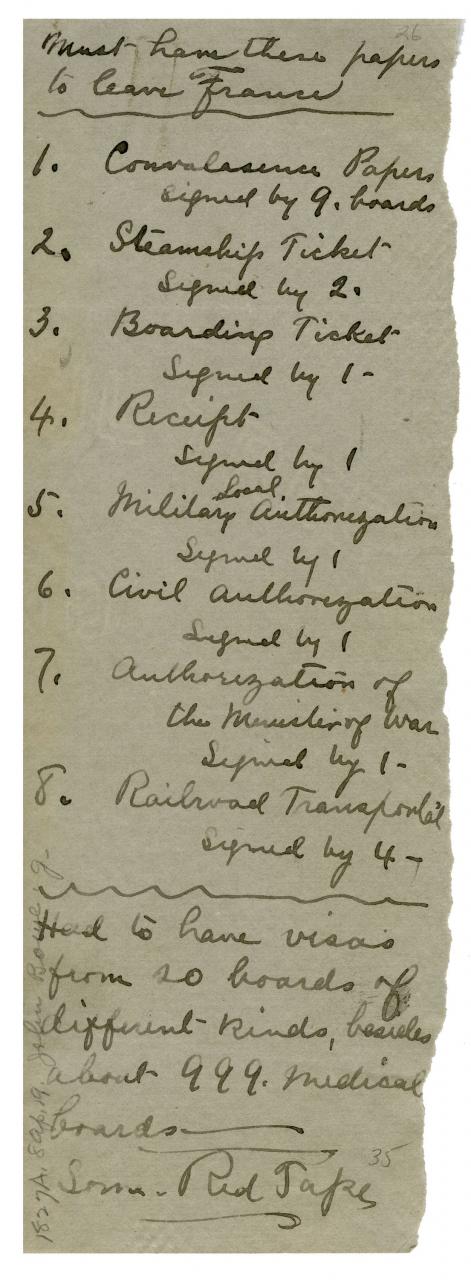 26
Must have these papers
to leave France
1. Convalasence Papers
signed by 9. boards
2. Steamship Ticket
Signed by 2.
3. Boarding Ticket
Signed by 1-
4. Receipt
Signed by 1
Local
5. Military Authorization
Signed by 1
6. Civil Authorization
Signed by 1
7. Authorization of
the Minister of War
Signed by 1-
8. Railroad Transportat
Signed by 4-
Had to have visas
from 20 boards of
different kinds, besides
about 999. Medical
boards
Some. Red Tape
35
John